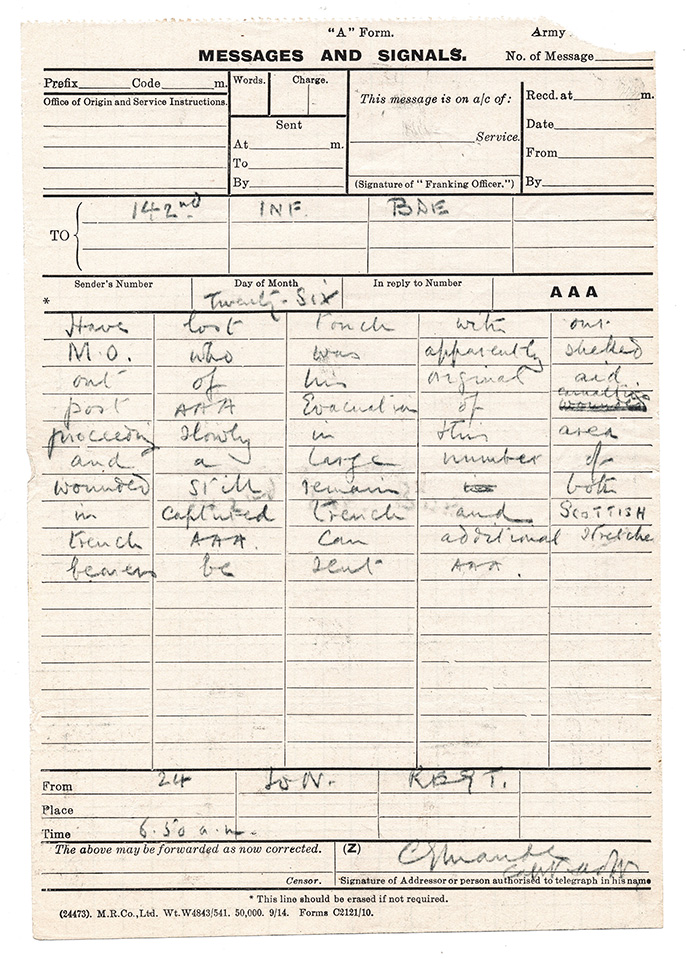 "A" Form. Army
MESSAGES AND SIGNALS. No. of Message
Prefix Code m. Words. Charge. This message is on a/c of: Recd. at m.
Office of Origin and Service Instructions. Sent Service. Date
At m. From
To
By (Signature of "Franking Officer.") By
TO 142nd INF. BDE
Sender's Number Day of Month In reply to Number AAA
* Twenty-Six
Have lost touch with our
M.O. who was apparently shelled
out of his orginal aid
post AAA Evacuation of
proceeding slowly in this area
and a large number of
wounded still remain both
in captured trench and SCOTTISH
trench AAA. Can additional stretcher
bearers be sent AAA.
From 24 LON. REGT.
Place
Time 6.50 a.m.
The above may be forwarded as now corrected. (Z)
Censor. Signature of Addressor or person authorised to telegraph in his name
* This line should be erased if not required.
(24473). M.R.Co.,Ltd. Wt.W4843/541. 50,000. 9/14. Forms C2121/10.